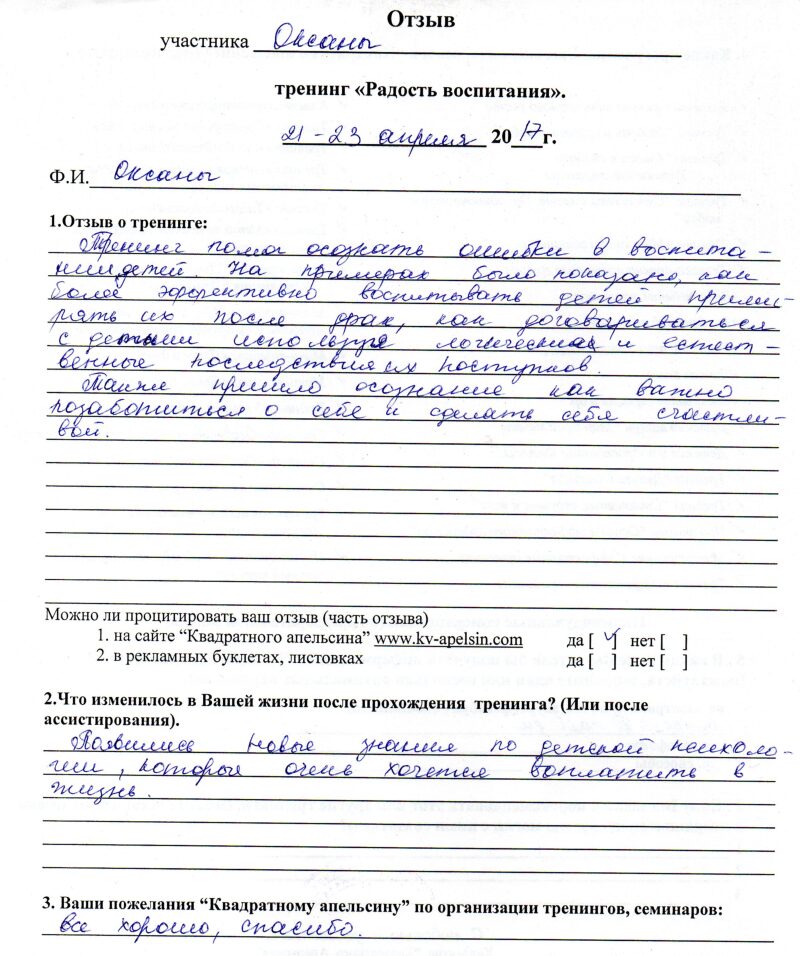 Отзыв
участника Оксаны
тренинг «Радость воспитания».
21-23 апреля 2017г.
Ф.И. Оксаны
1.Отзыв о тренинге:
Тренинг помог осознать ошибки в воспита-
нии детей. На примерах было показано, как
более эффективно воспитывать детей, прими-
рять их после драк, как договариваться
с детьми используя логические и естест-
венные последствия их поступков.
Также пришло осознание как важно
позаботиться о себе и сделать себя счастли-
вой.
Можно ли процитировать ваш отзыв (часть отзыва)
1. на сайте “Квадратного апельсина” www.kv-apelsin.com да [ ✓ ] нет [ ]
2. в рекламных буклетах, листовках да [ ] нет [ ]
2.Что изменилось в Вашей жизни после прохождения тренинга? (Или после
ассистирования).
Появились новые знания по детской психоло-
гии, которые очень хочется воплотить в
жизнь.
3. Ваши пожелания “Квадратному апельсину” по организации тренингов, семинаров:
все хорошо, спасибо.